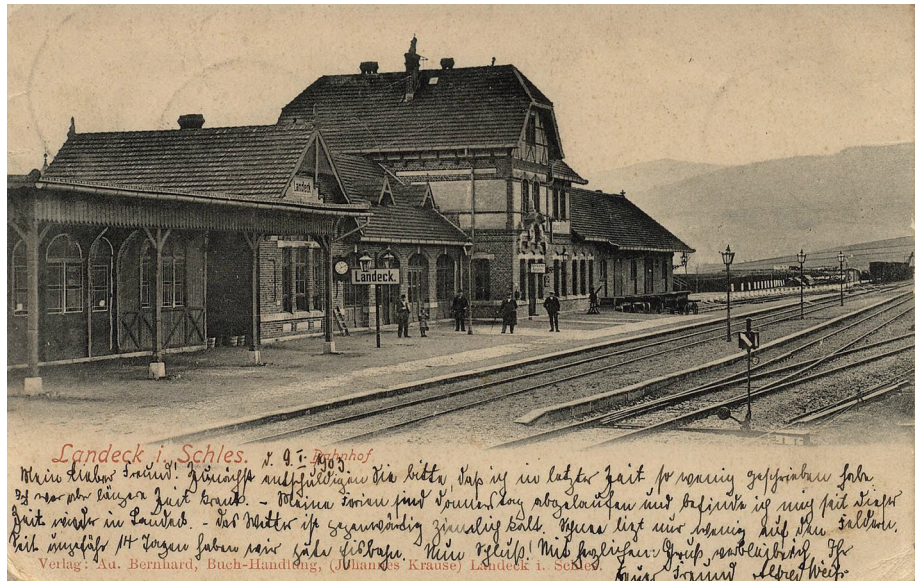 Landeck
Landeck.
Landeck i. Schles.
Bahnhof
d. 9. I. 1903.
Mein lieber Freund! Zunächst entschuldigen Sie bitte, daß ich in letzter Zeit so wenig geschrieben habe.
Ich war aber längere Zeit krank. - Meine Ferien sind Donnerstag abgelaufen und befinde ich mich seit dieser
Zeit wieder in Landeck. - Das Wetter ist gegenwärtig ziemlich kalt. Schnee liegt nur wenig auf den Feldern.
Seit ungefähr 14 Tagen haben wir gute Eisbahn. Nun Schluß! Mit herzlichem Gruß verbleibe ich Ihr
Verlag: Au. Bernhard, Buch-Handlung, (Johannes Krause) Landeck i. Schles.
Freund Alfred